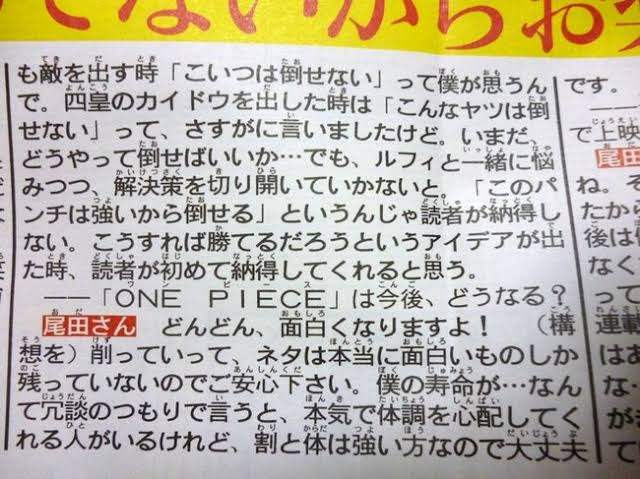 でないからお
も敵を出す時「こいつは倒せない」って僕が思うん
で。四皇のカイドウを出した時は「こんなヤツは倒
せない」って、さすがに言いましたけど。いまだ、
どうやって倒せばいいか…でも、ルフィと一緒に悩
みつつ、解決策を切り開いていかないと。「このパ
ンチは強いから倒せる」というんじゃ読者が納得し
ない。こうすれば勝てるだろうというアイデアが出
た時、読者が初めて納得してくれると思う。
――「ONE PIECE」は今後、どうなる？
尾田さん どんどん、面白くなりますよ！ （構
想を）削っていって、ネタは本当に面白いものしか
残っていないのでご安心下さい。僕の寿命が…なん
て冗談のつもりで言うと、本気で体調を心配してく
れる人がいるけれど、割と体は強い方なので大丈夫
です。
で上映
尾田
ね。そ
たから
後は
なく
って
連載
はお
が
て